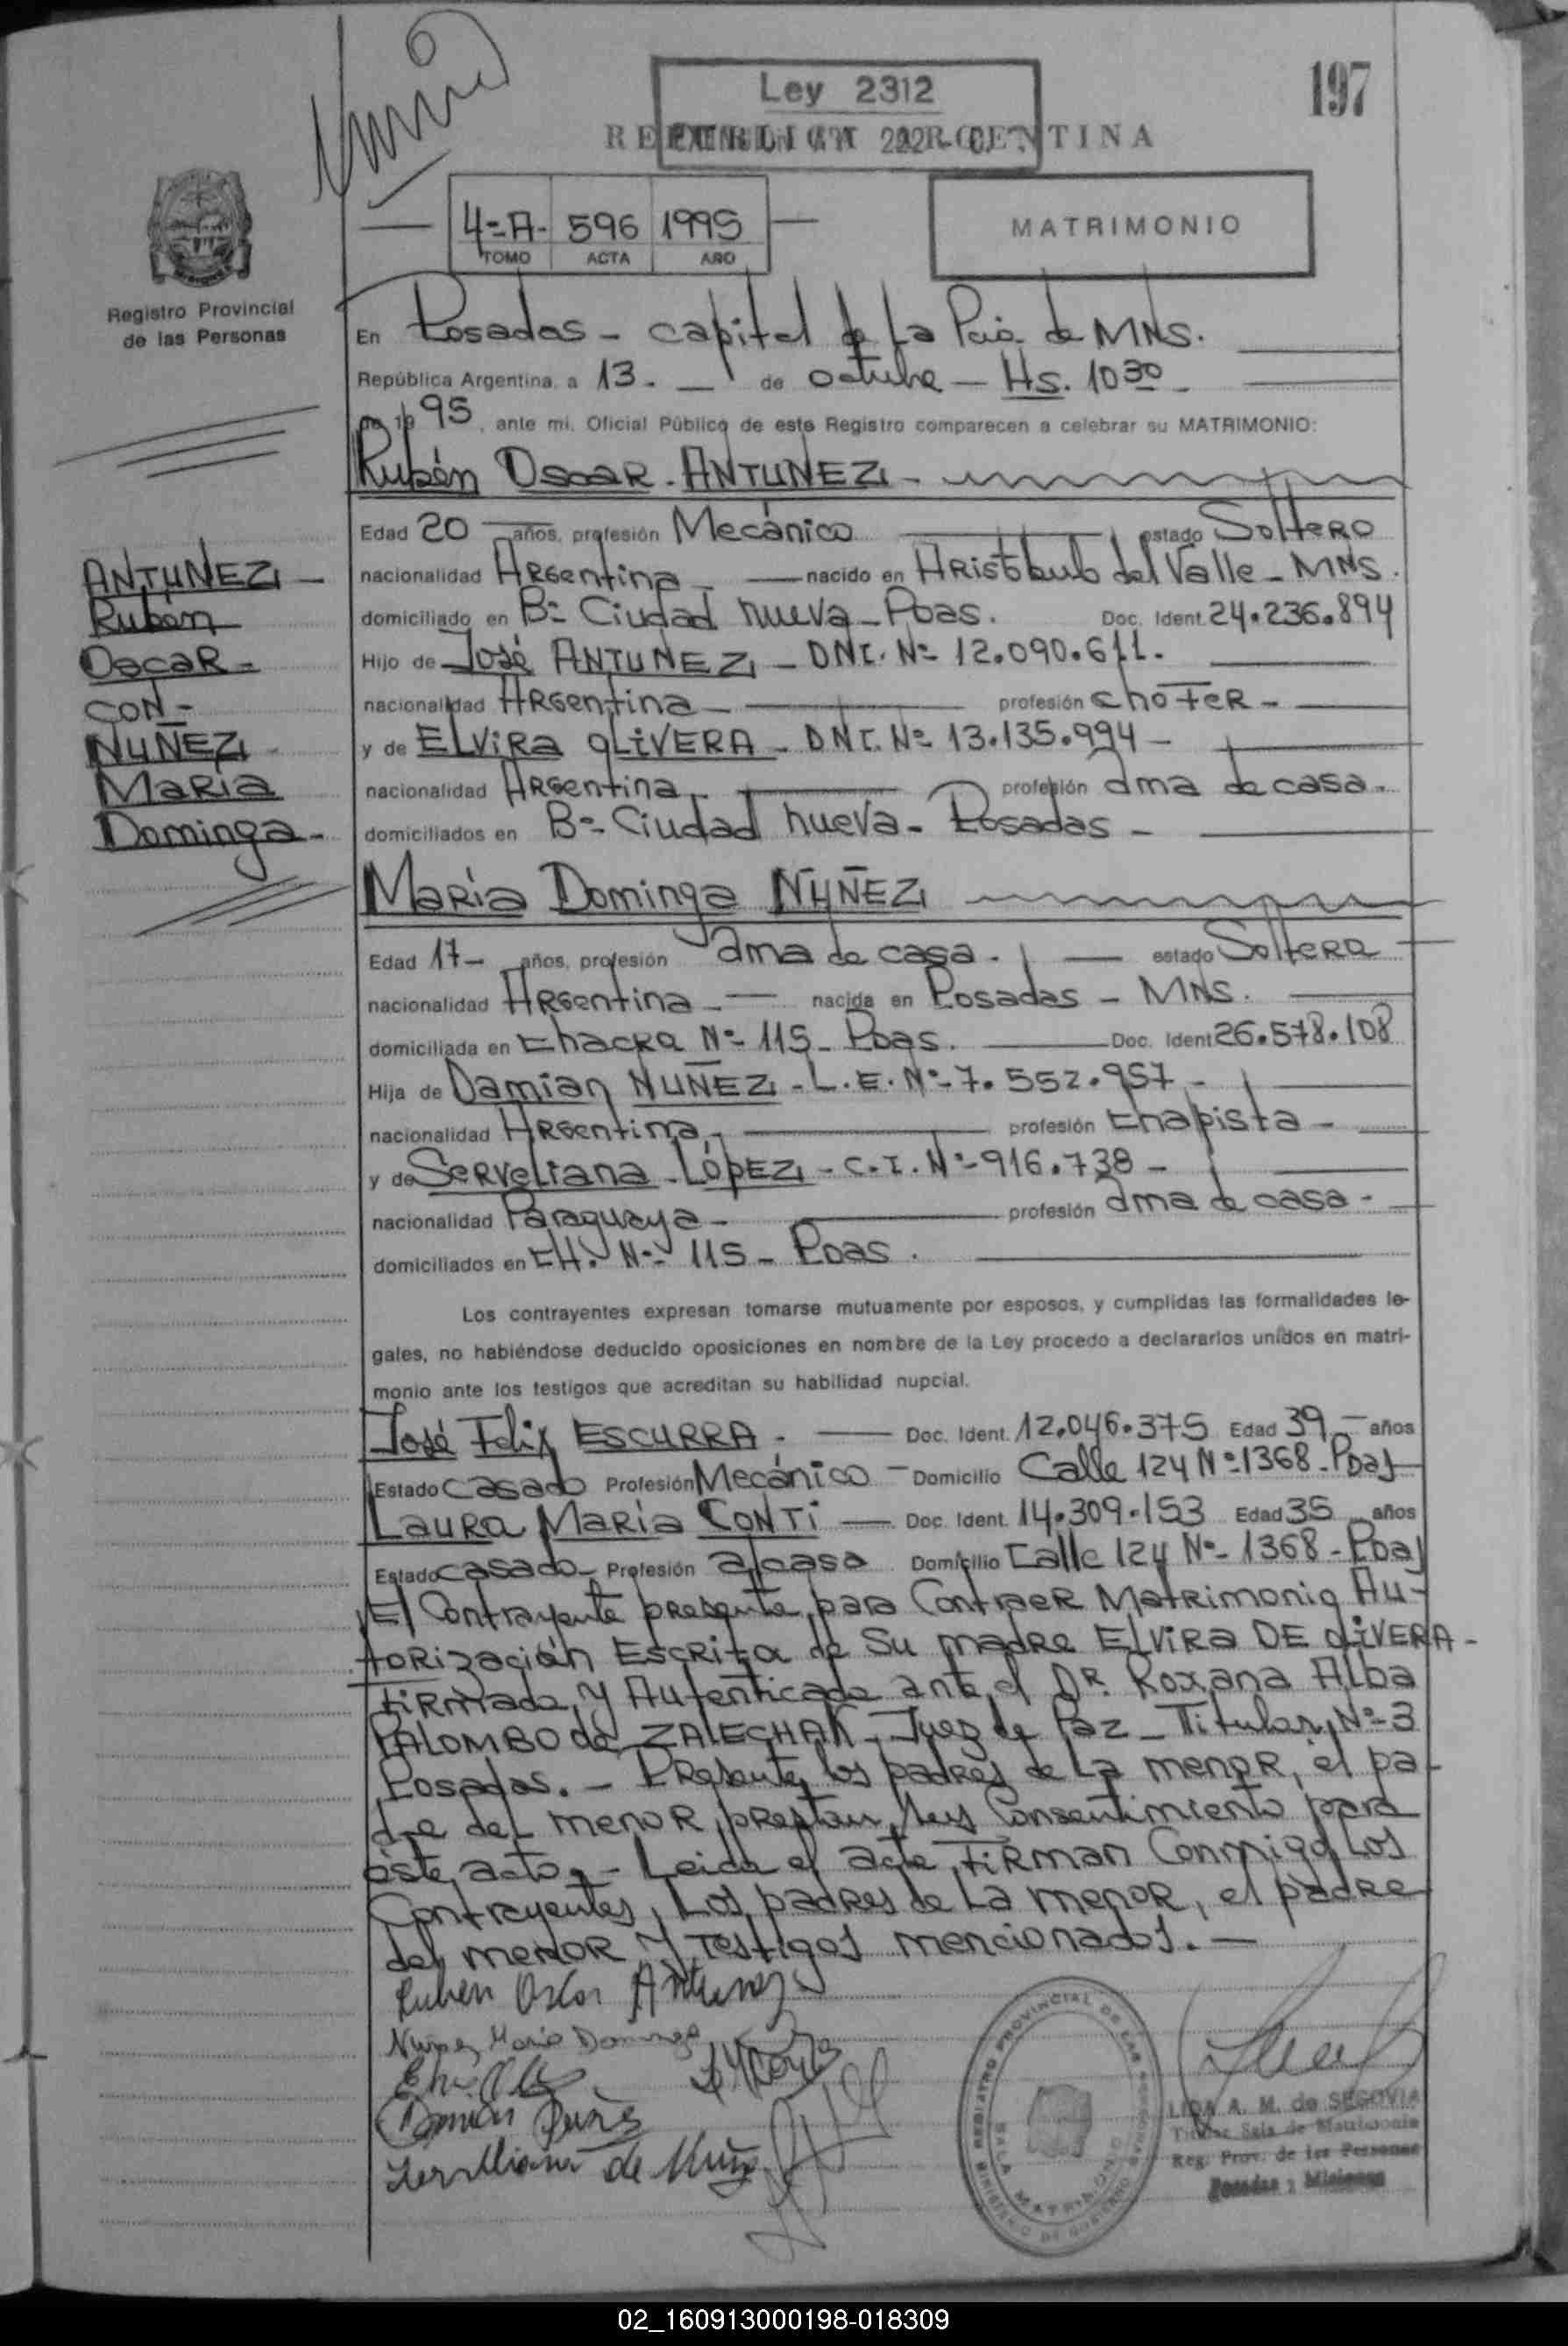 197
Ley 2312
REPUBLICA ARGENTINA
4=A- 596 1995
TOMO ACTA AÑO
MATRIMONIO
Registro Provincial
de las Personas
En Posadas - capital de La Pcia de MNS.
República Argentina, a 13.- de octubre - Hs. 10 30 -
de 1995, ante mi, Oficial Público de este Registro comparecen a celebrar su MATRIMONIO:
Rubén Oscar - ANTUNEZ -
Edad 20 años, profesión Mecánico estado Soltero
nacionalidad Argentina - nacido en Aristobulo del Valle - MNS.
domiciliado en Bº Ciudad nueva - Pdas. Doc. Ident. 24.236.894
Hijo de José ANTUNEZ - DNI. Nº 12.090.611.
nacionalidad Argentina - profesión choFer -
y de ELVIRA OLIVERA - DNI. Nº 13.135.994 -
nacionalidad Argentina - profesión ama de casa -
domiciliados en Bº Ciudad nueva - Posadas -
ANTUNEZ -
Rubén
Oscar -
CON -
NUÑEZ -
Maria
Dominga -
Maria Dominga NUÑEZ
Edad 17 - años, profesión ama de casa - estado Soltera
nacionalidad Argentina - nacida en Posadas - MNS.
domiciliada en Chacra Nº 115 - Pdas. Doc. Ident. 26.578.108
Hija de Damian NUÑEZ - L.E. Nº 7.552.957 -
nacionalidad Argentina - profesión Chapista -
y de Serveliana - López - C.I. Nº 916.738 -
nacionalidad Paraguaya - profesión ama de casa -
domiciliados en CH. Nº 115 - Pdas.
Los contrayentes expresan tomarse mutuamente por esposos, y cumplidas las formalidades le-
gales, no habiéndose deducido oposiciones en nombre de la Ley procedo a declararlos unidos en matri-
monio ante los testigos que acreditan su habilidad nupcial.
José Felix ESCURRA - Doc. Ident. 12.046.375 Edad 39 - años
Estado casado Profesión Mecánico - Domicilio Calle 124 Nº 1368 - Pdas
Laura Maria CONTI - Doc. Ident. 14.309.153 Edad 35 años
Estado casado - Profesión a/casa Domicilio Calle 124 Nº 1368 - Pdas
El Contrayente presente para Contraer Matrimonio Au-
torización Escrita de Su madre ELVIRA DE OLIVERA -
firmada y Autenticada ante el Dr. Roxana Alba
PALOMBO de ZALECHAK - Juez de Paz - Titular Nº 3
Posadas. - Presente los padres de La menor, el pa-
dre del menor prestan sus Consentimiento para
este acto. - Leida el acta, Firman Conmigo Los
Contrayentes, Los padres de La menor, el padre
del menor y Testigos mencionados. -
Ruben Oscar Antunez
Nuñez Maria Dominga
Damian Nuñez
de Nuñez
REGISTRO PROVINCIAL DE LAS PERSONAS
SALA MATRIMONIO
MINISTERIO DE GOBIERNO
LIDA A. M. de SEGOVIA
Titular Sala de Matrimonio
Reg. Prov. de las Personas
Posadas - Misiones
02_160913000198-018309